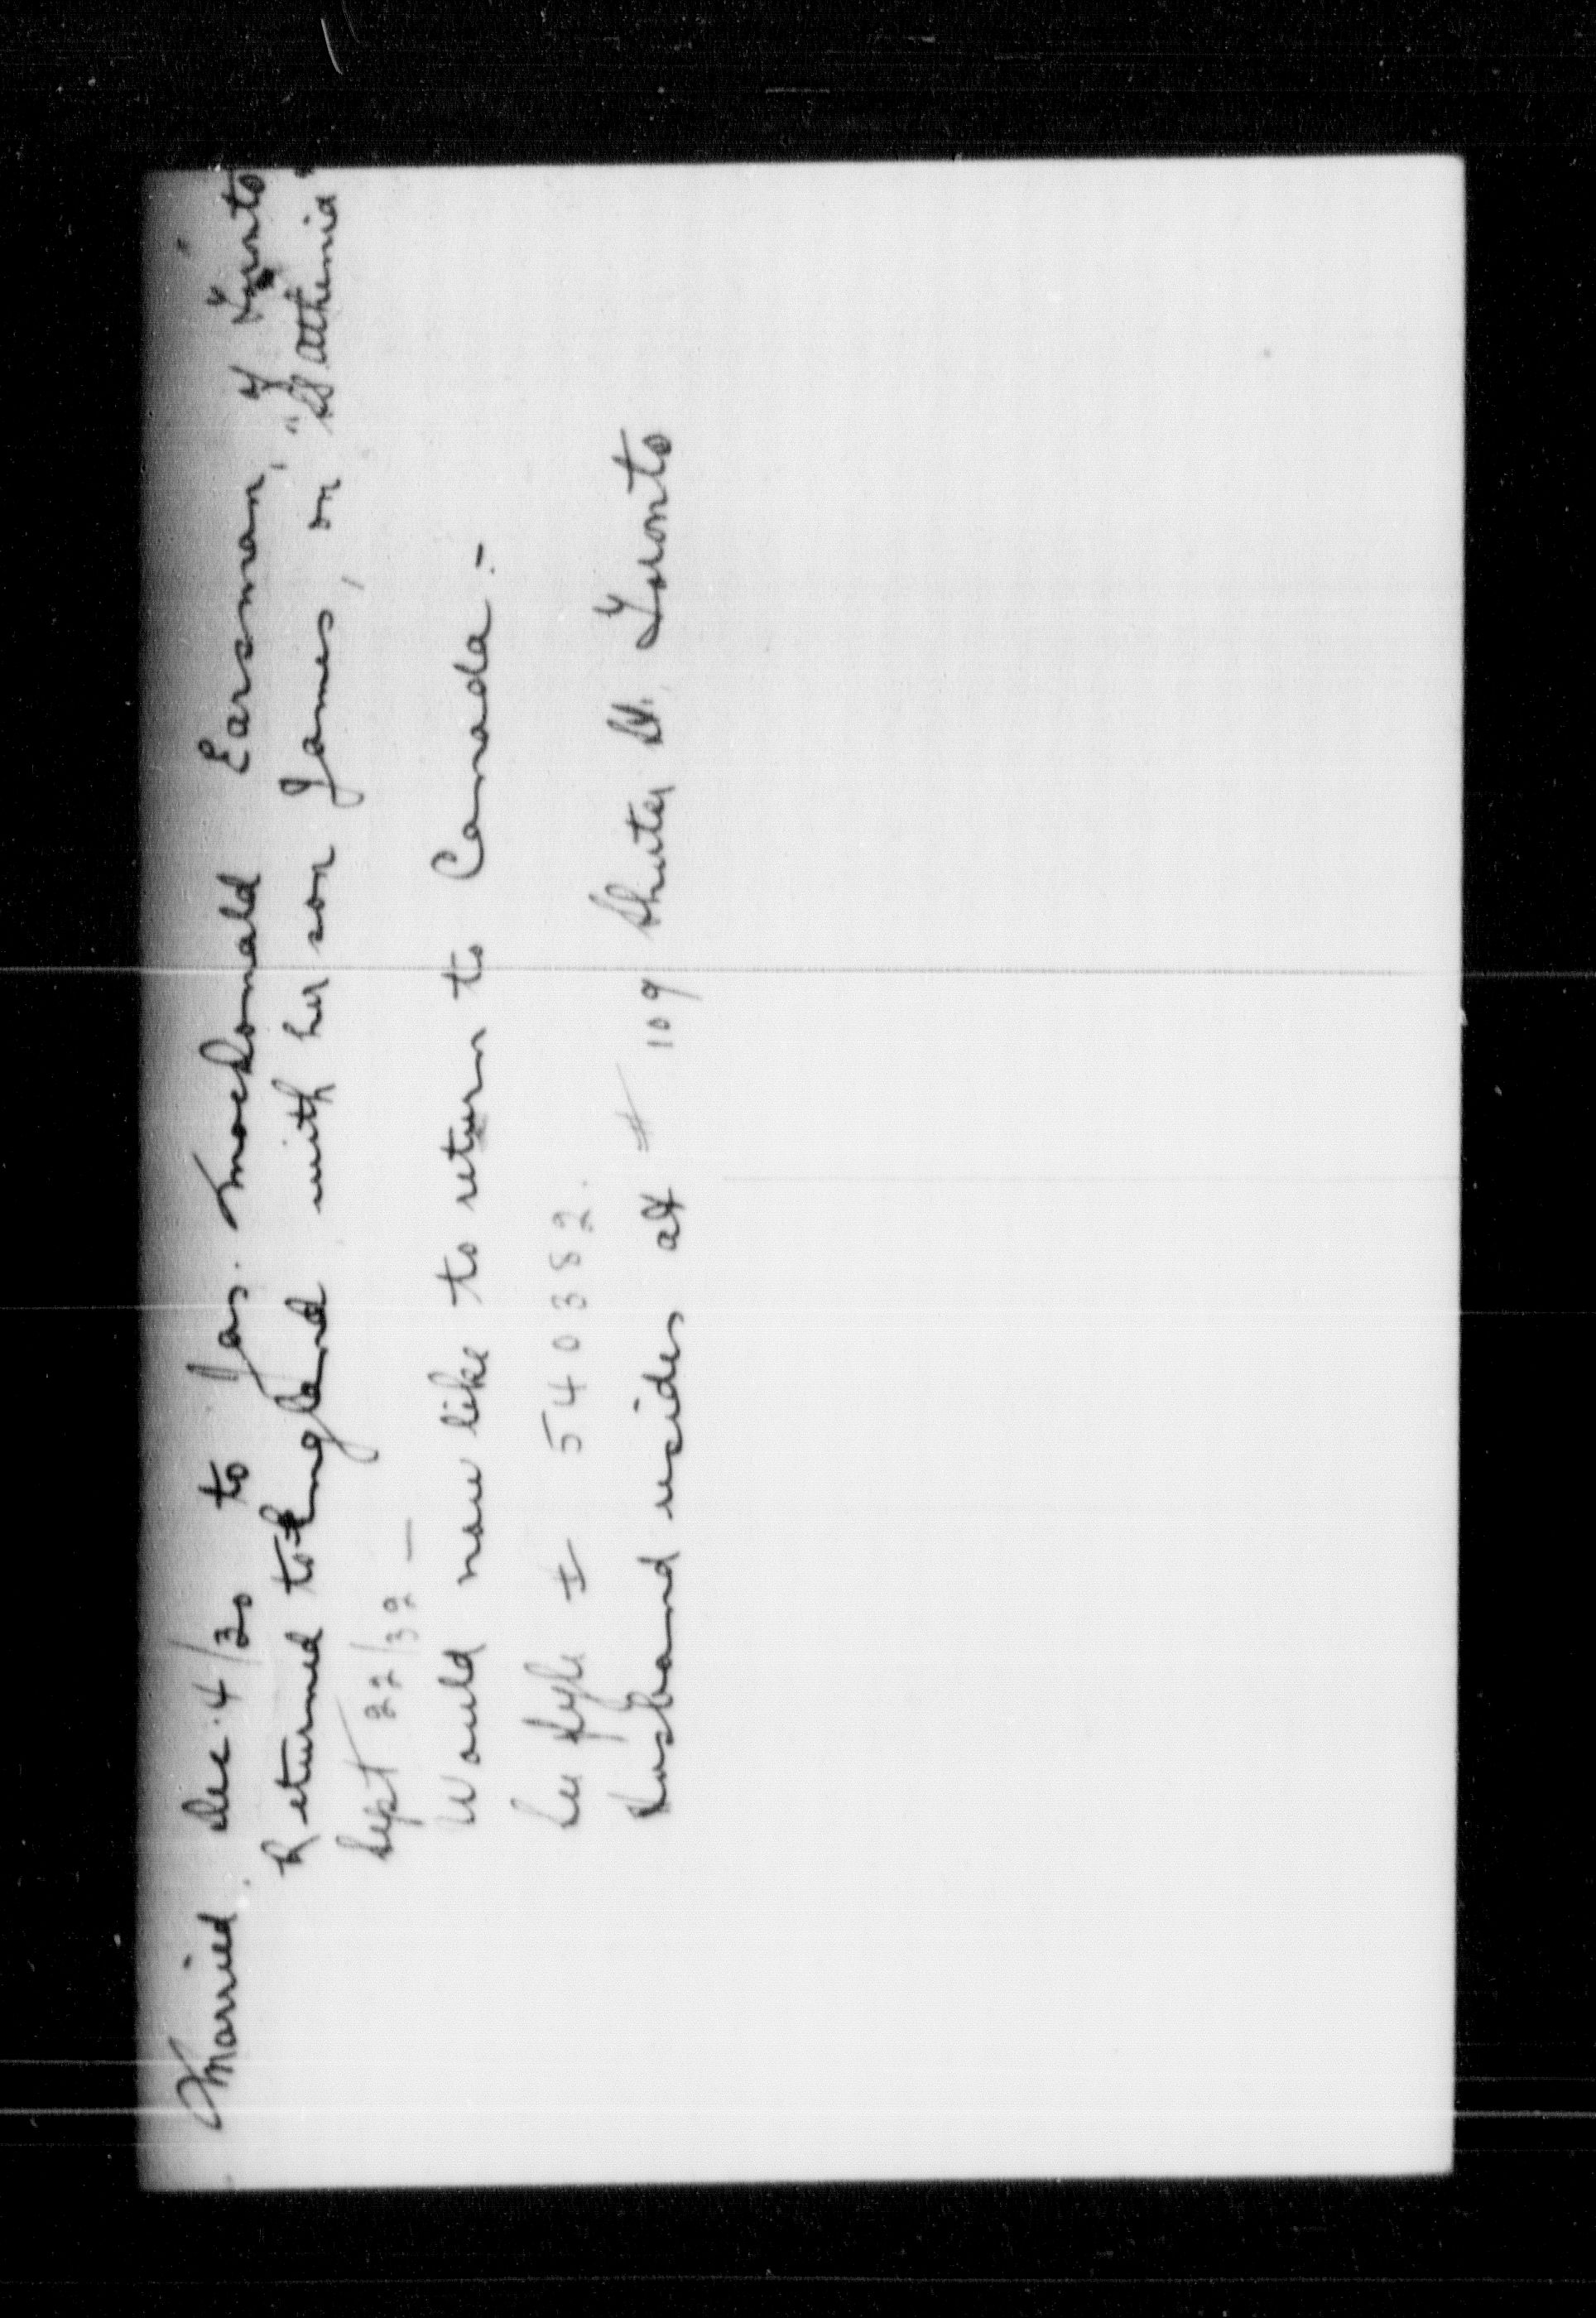 Married Dec. 4/30 to Jas. MacDonald Earsman, of Toronto
Returned to England with her son James, on "SS Athenia"
Sept 22/32 —
Would now like to return to Canada. -
See fyle I 540382.
Husband resides at # 109 Shuter St. Toronto